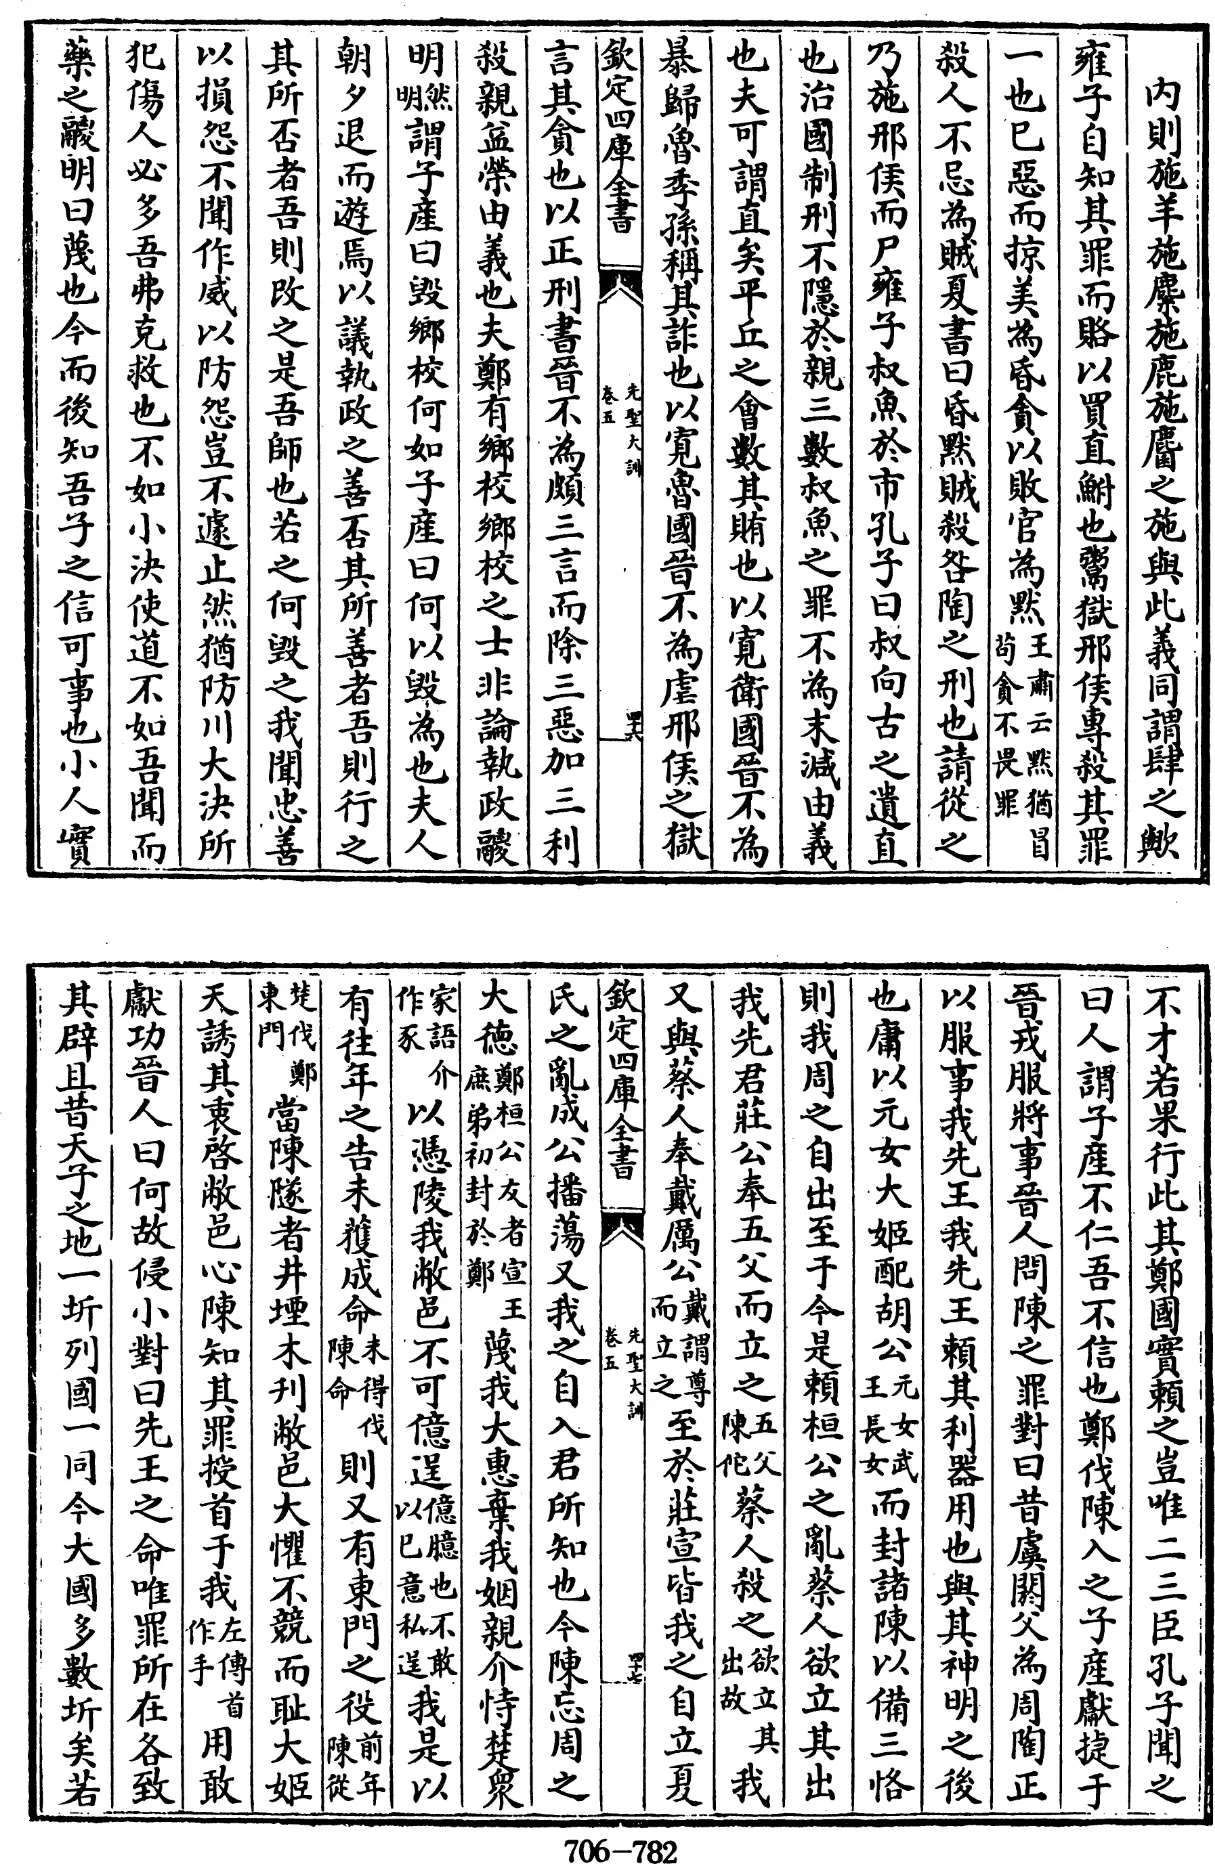 内則施羊施麋施鹿施麕之施與此義同謂肆之歟
雍子自知其罪而賂以買直鮒也鬻獄邢侯專殺其罪
一也已惡而掠美為昏貪以敗官為默王肅云默猶冒苟貪不畏罪
殺人不忌為賊夏書曰昏默賊殺咎陶之刑也請從之
乃施邢侯而尸雍子叔魚於市孔子曰叔向古之遺直
也治國制刑不隱於親三數叔魚之罪不為末減由義
也夫可謂直矣平丘之會數其賄也以寛衛國晉不為
暴歸魯季孫稱其詐也以寛魯國晉不為虐邢侯之獄
欽定四庫全書 先聖大訓 卷五 四十六
言其貪也以正刑書晉不為頗三言而除三惡加三利
殺親益榮由義也夫鄭有鄉校鄉校之士非論執政鬷
明然明謂子產曰毀鄉校何如子產曰何以毀為也夫人
朝夕退而遊焉以議執政之善否其所善者吾則行之
其所否者吾則改之是吾師也若之何毀之我聞忠善
以損怨不聞作威以防怨豈不遽止然猶防川大決所
犯傷人必多吾弗克救也不如小決使道不如吾聞而
藥之鬷明曰蔑也今而後知吾子之信可事也小人實
不才若果行此其鄭國實賴之豈唯二三臣孔子聞之
曰人謂子產不仁吾不信也鄭伐陳入之子產獻捷于
晉戎服將事晉人問陳之罪對曰昔虞閼父為周陶正
以服事我先王我先王賴其利器用也與其神明之後
也庸以元女大姬配胡公元女武王長女而封諸陳以備三恪
則我周之自出至于今是賴桓公之亂蔡人欲立其出
我先君莊公奉五父而立之五父陳佗蔡人殺之欲立其出故我
又與蔡人奉戴厲公戴謂尊而立之至於莊宣皆我之自立夏
欽定四庫全書 先聖大訓 卷五 四十七
氏之亂成公播蕩又我之自入君所知也今陳忘周之
大德鄭桓公友者宣王庶弟初封於鄭蔑我大惠棄我姻親介恃楚衆
家語介作豕以憑陵我敝邑不可億逞億臆也不敢以已意私逞我是以
有往年之告未獲成命未得伐陳命則又有東門之役前年陳從
楚伐鄭東門當陳隧者井堙木刋敝邑大懼不競而耻大姬
天誘其衷啓敝邑心陳知其罪授首于我左傳首作手用敢
獻功晉人曰何故侵小對曰先王之命唯罪所在各致
其辟且昔天子之地一圻列國一同今大國多數圻矣若
706-782